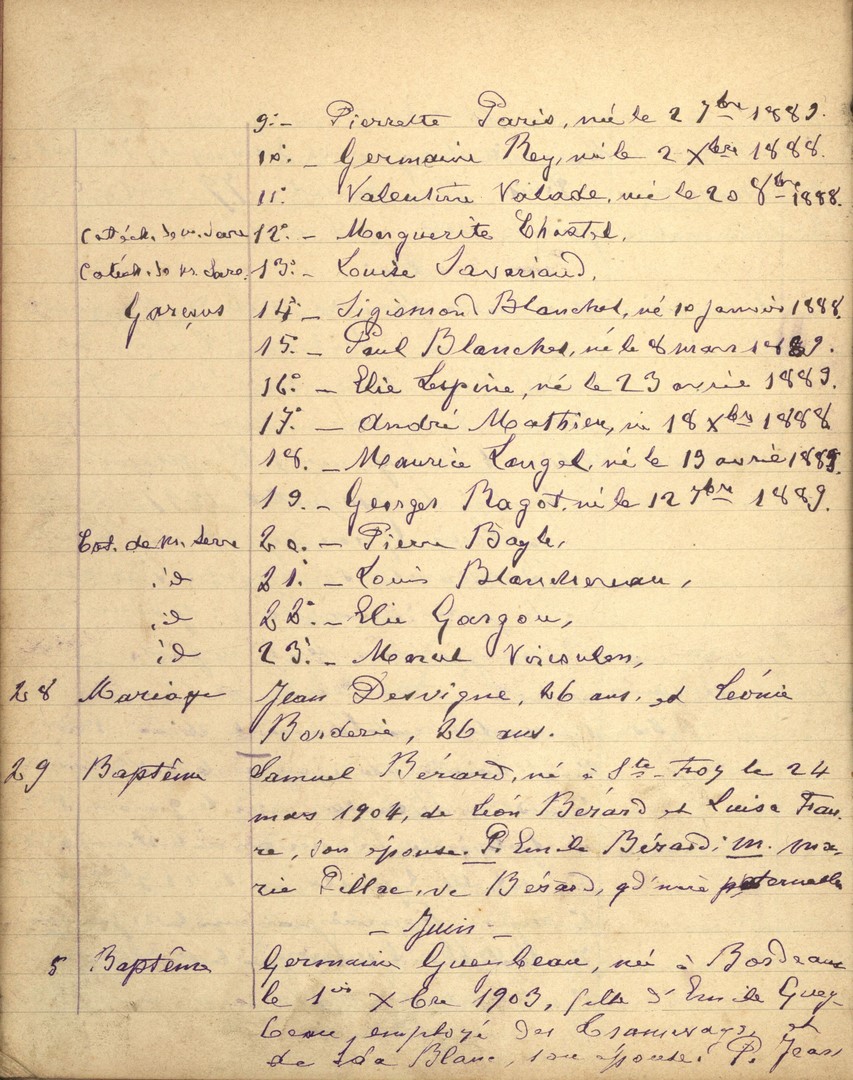 9. - Pierrette Paris, née le 2 7bre 1889.
10. - Germaine Rey, née le 2 Xbre 1888.
11. Valentine Valade, née le 20 8bre 1888.
Catéch. de m. 12. - Marguerite Chastel,
Catéch. de m. 13. - Louise Savariaud,
Garçons 14. - Sigismond Blanchet, né 10 janvier 1888.
15. - Paul Blanchet, né le 8 mars 1889.
16. - Elie Lespine, né le 23 avril 1889.
17. - André Mathieu, né 18 Xbre 1888
18. - Maurice Longet, né le 19 avril 1889.
19. - Georges Ragot, né le 12 7bre 1889.
Cat. de m. Serre 20. - Pierre Bayle,
id 21. - Louis Blanchereau,
id 22. - Elie Gargou,
id 23. - Marcel Viroulon,
28 Mariage Jean Desvigne, 26 ans, et Léonie
Borderie, 26 ans.
29 Baptême Samuel Bérard, né à Ste-Foy le 24
mars 1904, de Léon Bérard et Luisa Fau-
re, son épouse. P. Emile Bérard; m. Ma-
rie Pillac, ve Bérard, gd'mère paternelle
- Juin -
5 Baptême Germaine Gueybeau, née à Bordeaux
le 1er Xbre 1903, fille d'Emile Guey-
beau, employé des tramways, et
de Léa Blanc, son épouse. P. Jean